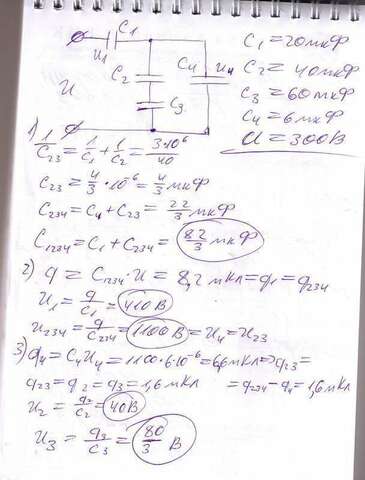 C₁
U₁
C₂
C₄
U₄
U
C₃
C₁=20мкФ
C₂=40мкФ
C₃=60мкФ
C₄=6мкФ
U=300В
1) 1/C₂₃ = 1/C₁ + 1/C₂ = 3·10⁶/40
C₂₃ = 4/3 · 10⁻⁶ = 4/3 мкФ
C₂₃₄ = C₄ + C₂₃ = 22/3 мкФ
C₁₂₃₄ = C₁ + C₂₃₄ = 82/3 мкФ
2) q = C₁₂₃₄ · U = 8,2 мКл = q₁ = q₂₃₄
U₁ = q/C₁ = 410 В
U₂₃₄ = q/C₂₃₄ = 1100 В = U₄ = U₂₃
3) q₄ = C₄U₄ = 1100·6·10⁻⁶ = 6,6 мкл => q₂₃ =
q₂₃ = q₂ = q₃ = 1,6 мкл = q₂₃₄ - q₄ = 1,6 мкл
U₂ = q₂/C₂ = 40В
U₃ = q₃/C₃ = 80/3 В